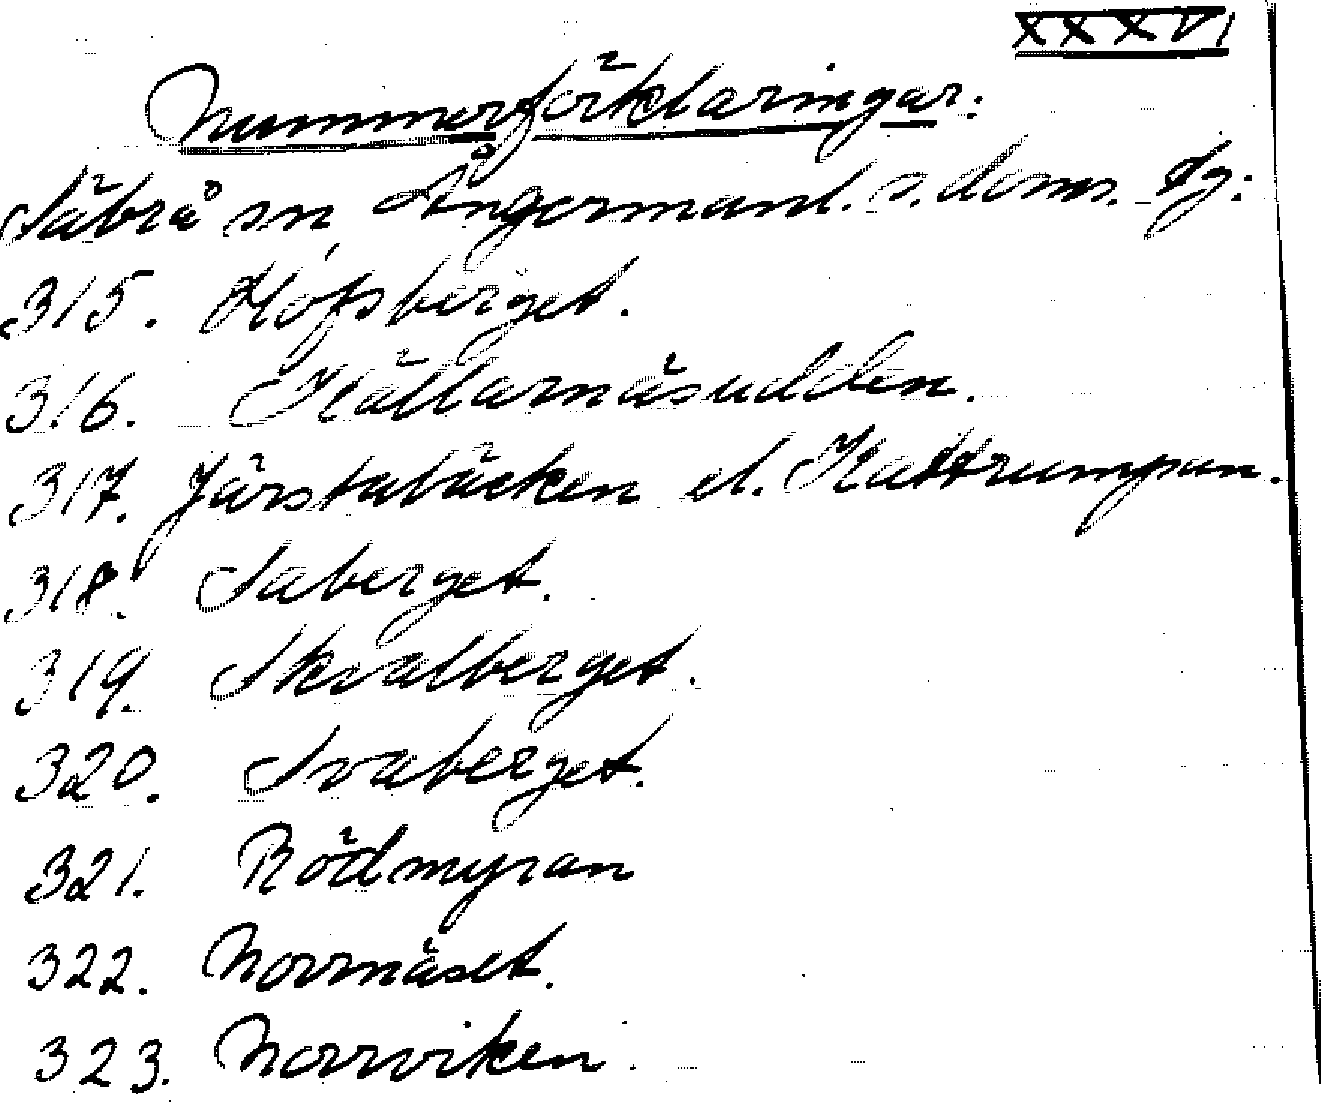 XXXVI
Nummerförklaringar.
Säbrå sn, Ångermanl. s. doms. tg:
315. Hofsberget.
316. Källarnäsudden.
317. Järstabäcken el. Kattrumpan.
318. Saberget.
319. Skvalberget.
320. Svaberget.
321. Rödmyran
322. Norrnäset.
323. Norrviken.